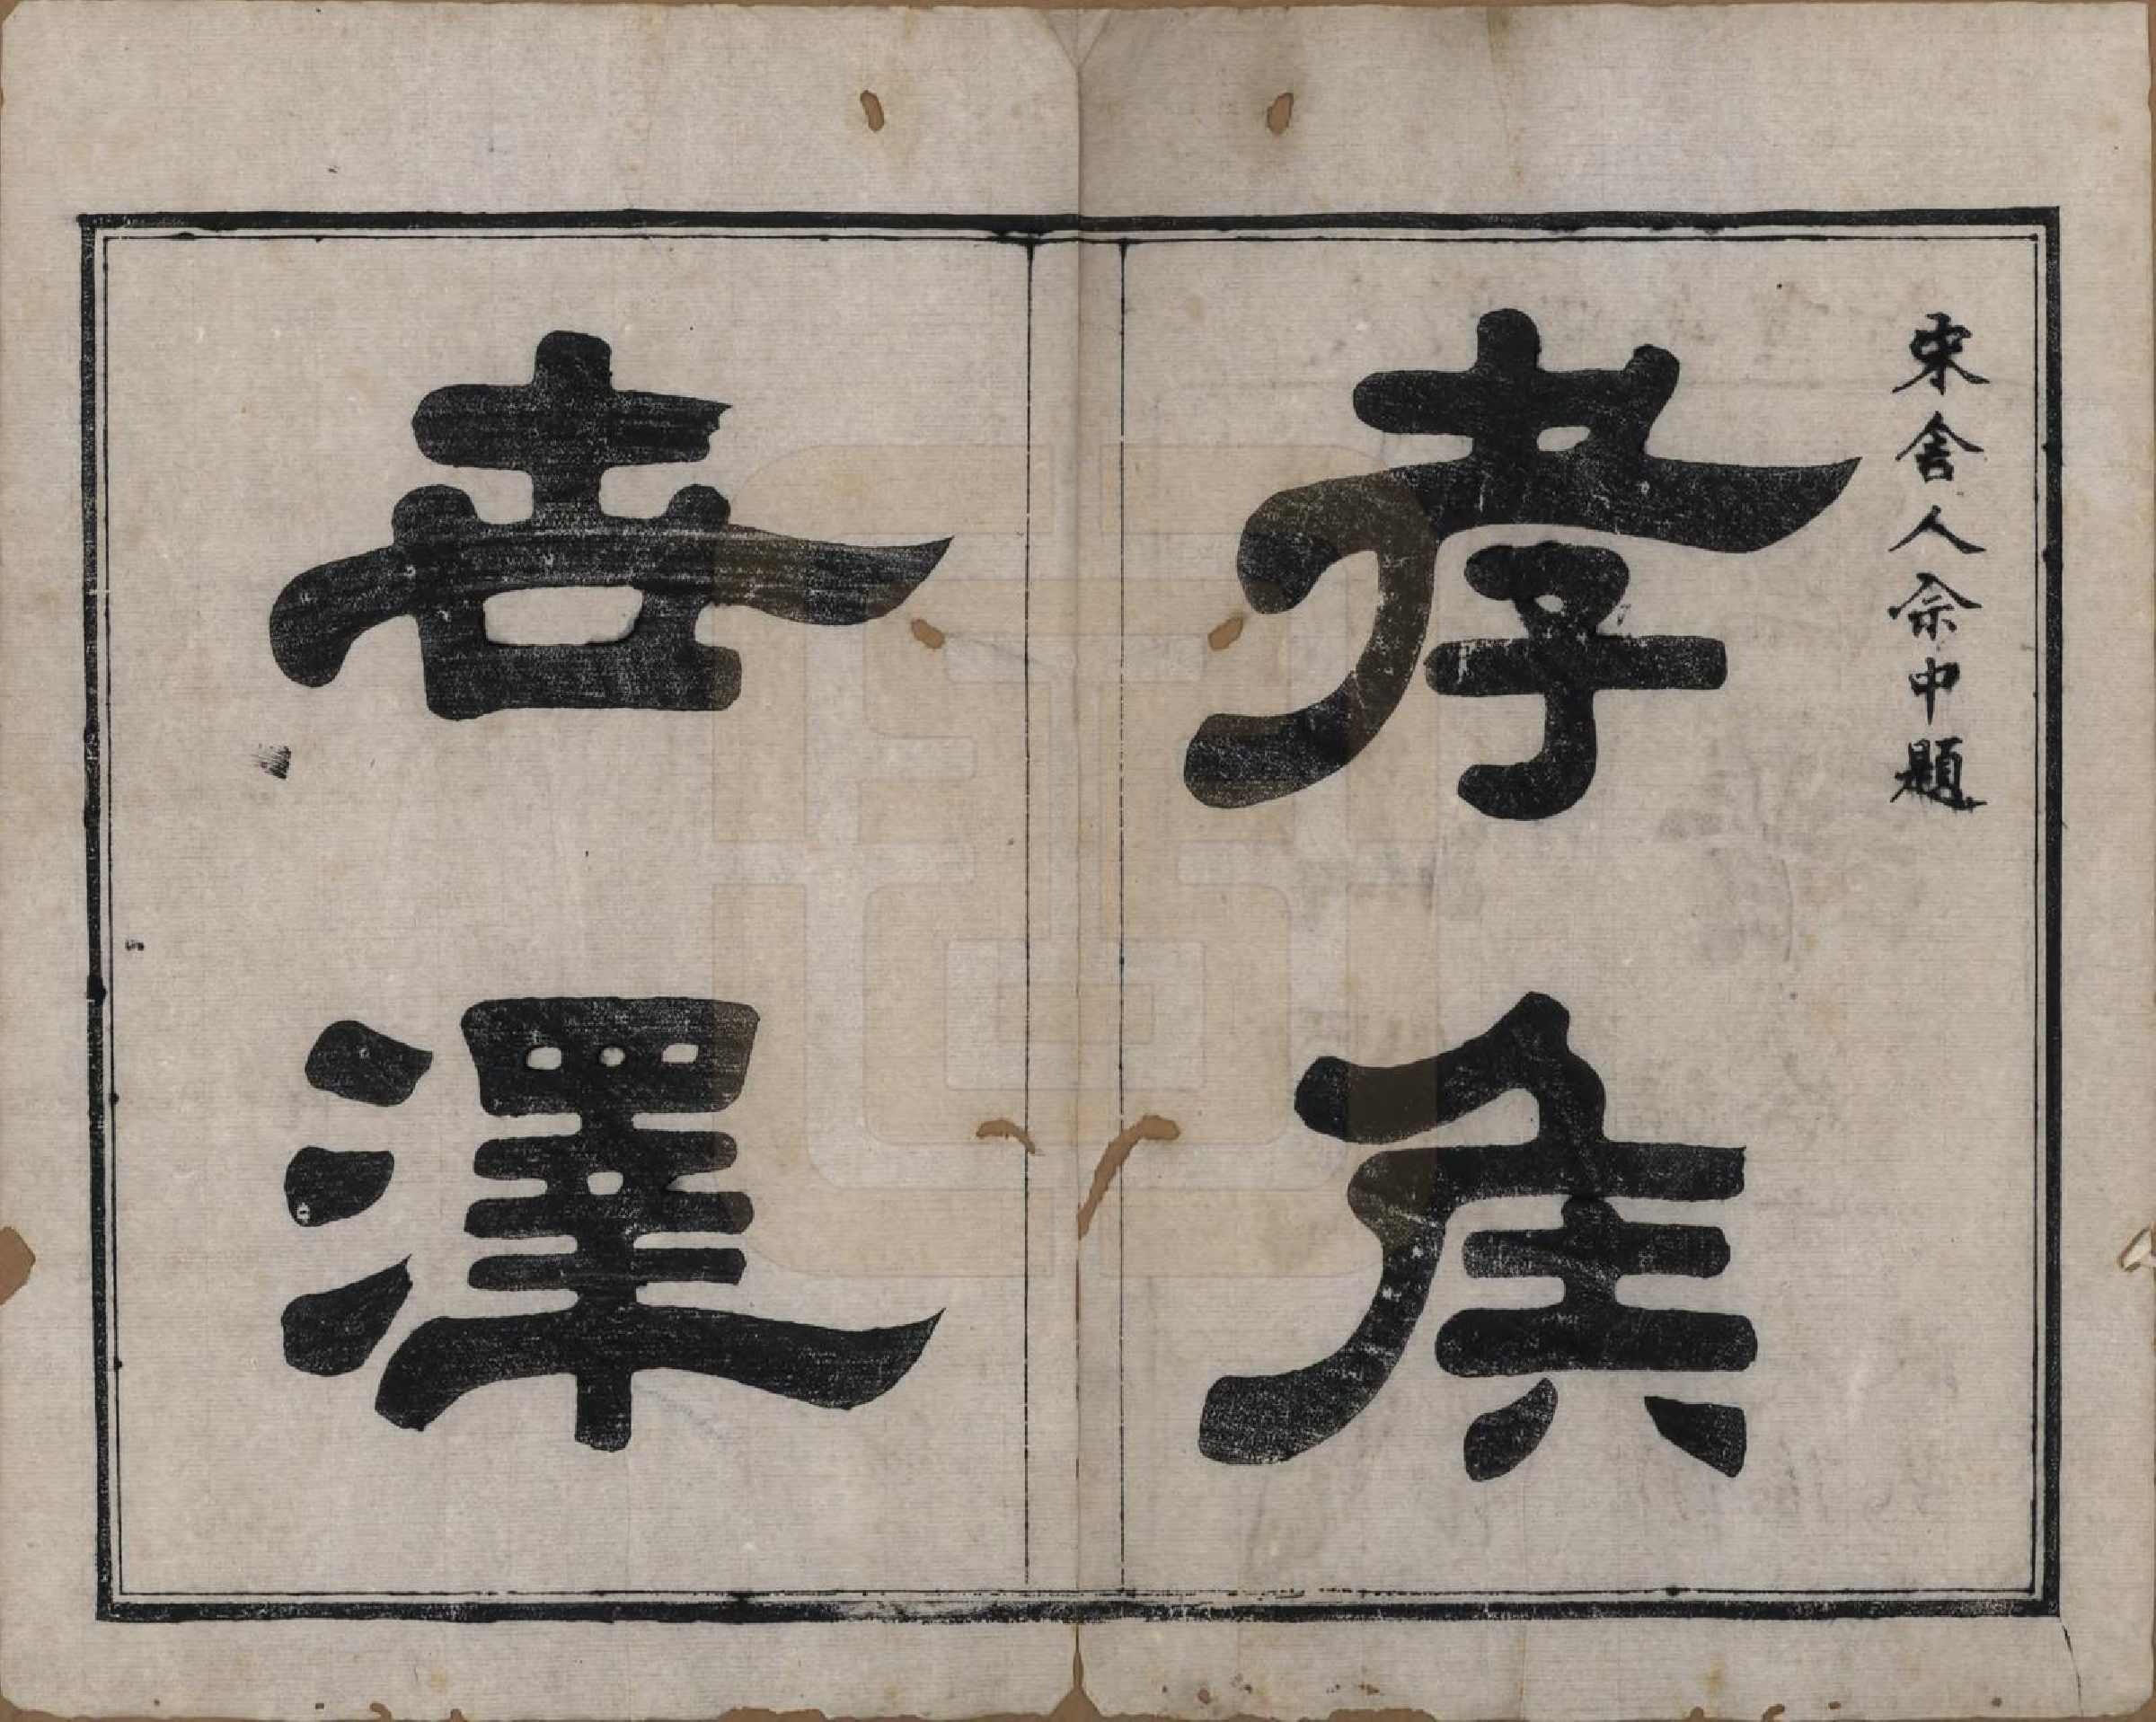 宋舍人余中題
孝矦
吉澤